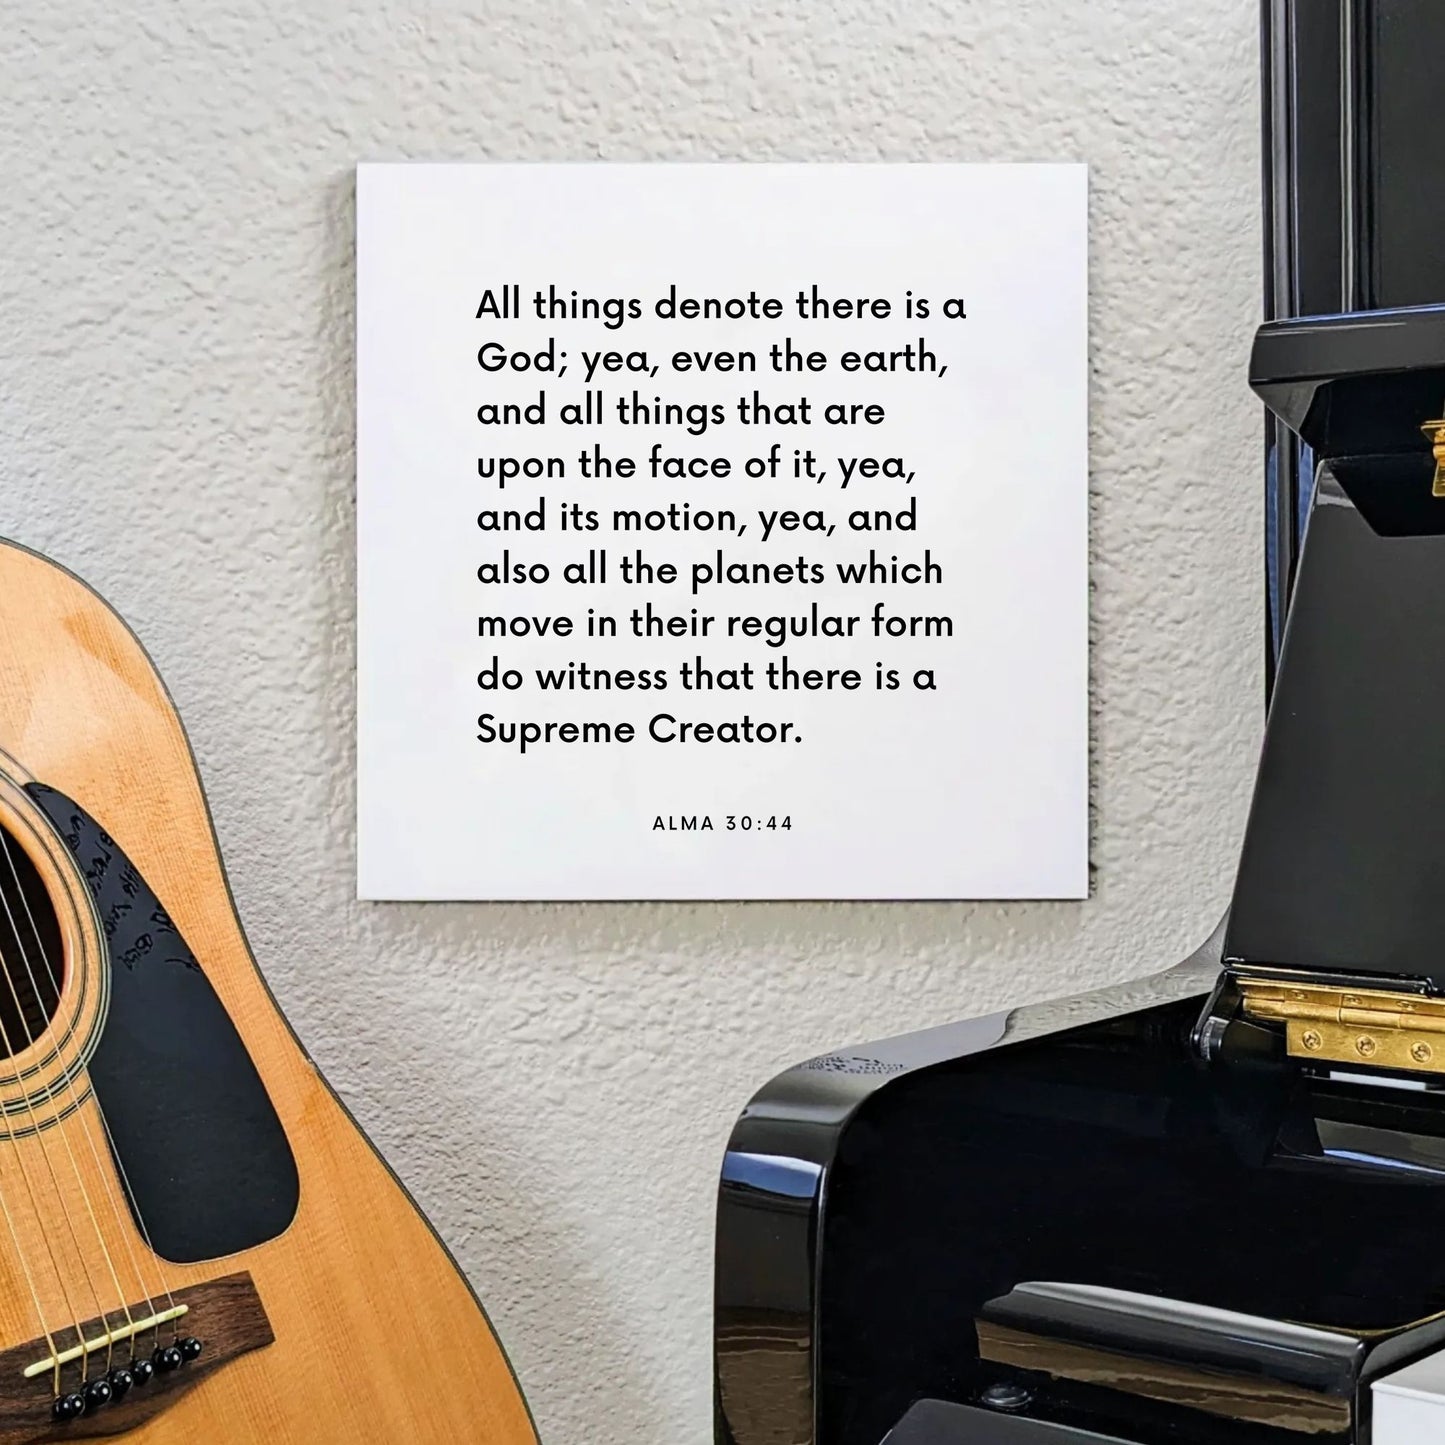 All things denote there is a
God; yea, even the earth,
and all things that are
upon the face of it, yea,
and its motion, yea, and
also all the planets which
move in their regular form
do witness that there is a
Supreme Creator.
ALMA 30:44